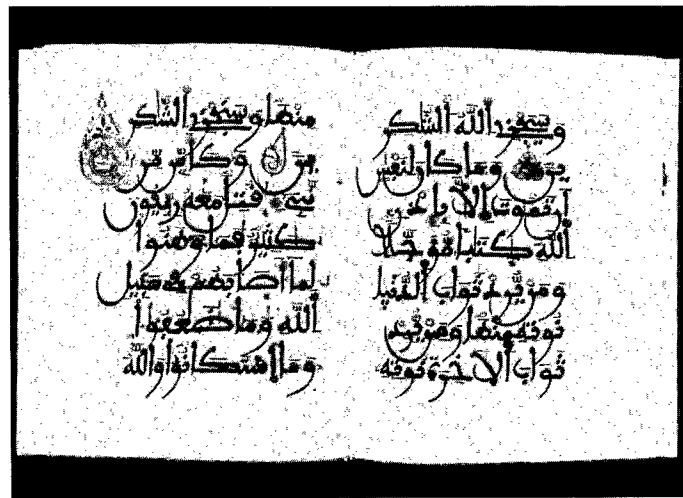 وسيجزي الله الشكر
ين وما كان لنفس
أن تموت إلا بإذن
الله كتبا مؤجلا
ومن يرد ثواب الدنيا
نوته منها ومن يرد
ثواب الاخرة نوته
منها وسنجزي الشكر
ين وكأين من
نبيء قتل معه ربيون
كثير فما وهنوا
لما أصابهم في سبيل
الله وما ضعفوا
وما استكانوا والله